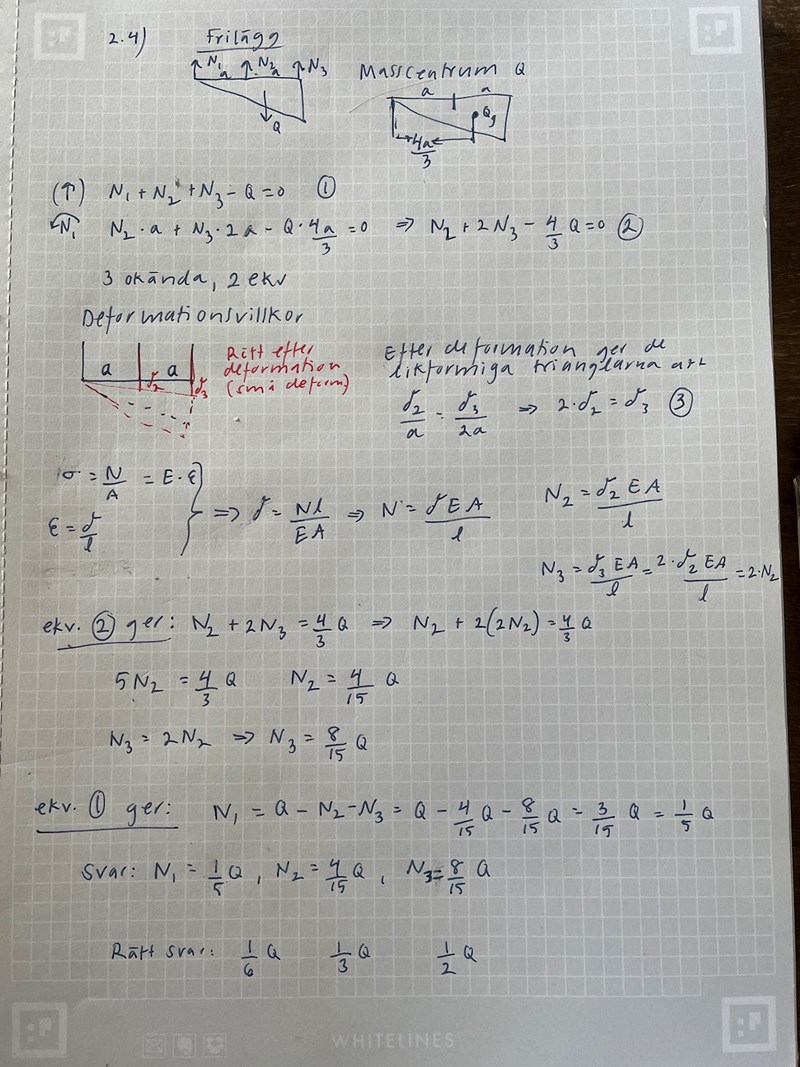 2.4) Frilägg
N₁ a N₂ a N₃ Masscentrum Q
a a
Q Qg
4a/3
(↑) N₁ + N₂ + N₃ - Q = 0 ①
N₁ N₂ · a + N₃ · 2a - Q · 4a/3 = 0 ⇒ N₂ + 2N₃ - 4/3 Q = 0 ②
3 okända, 2 ekv
Deformationsvillkor
a a δ₂ δ₃
Rätt efter
deformation
(små deform)
Efter deformation ger de
likformiga trianglarna att
δ₂/a = δ₃/2a ⇒ 2·δ₂ = δ₃ ③
σ = N/A = E · ε
ε = δ/l
⇒ δ = Nl/EA ⇒ N = δEA/l
N₂ = δ₂ EA/l
N₃ = δ₃ EA/l = 2·δ₂ EA/l = 2·N₂
ekv. ② ger: N₂ + 2N₃ = 4/3 Q ⇒ N₂ + 2(2N₂) = 4/3 Q
5N₂ = 4/3 Q N₂ = 4/15 Q
N₃ = 2N₂ ⇒ N₃ = 8/15 Q
ekv. ① ger: N₁ = Q - N₂ - N₃ = Q - 4/15 Q - 8/15 Q = 3/15 Q = 1/5 Q
Svar: N₁ = 1/5 Q, N₂ = 4/15 Q, N₃ = 8/15 Q
Rätt svar: 1/6 Q 1/3 Q 1/2 Q
WHITELINES